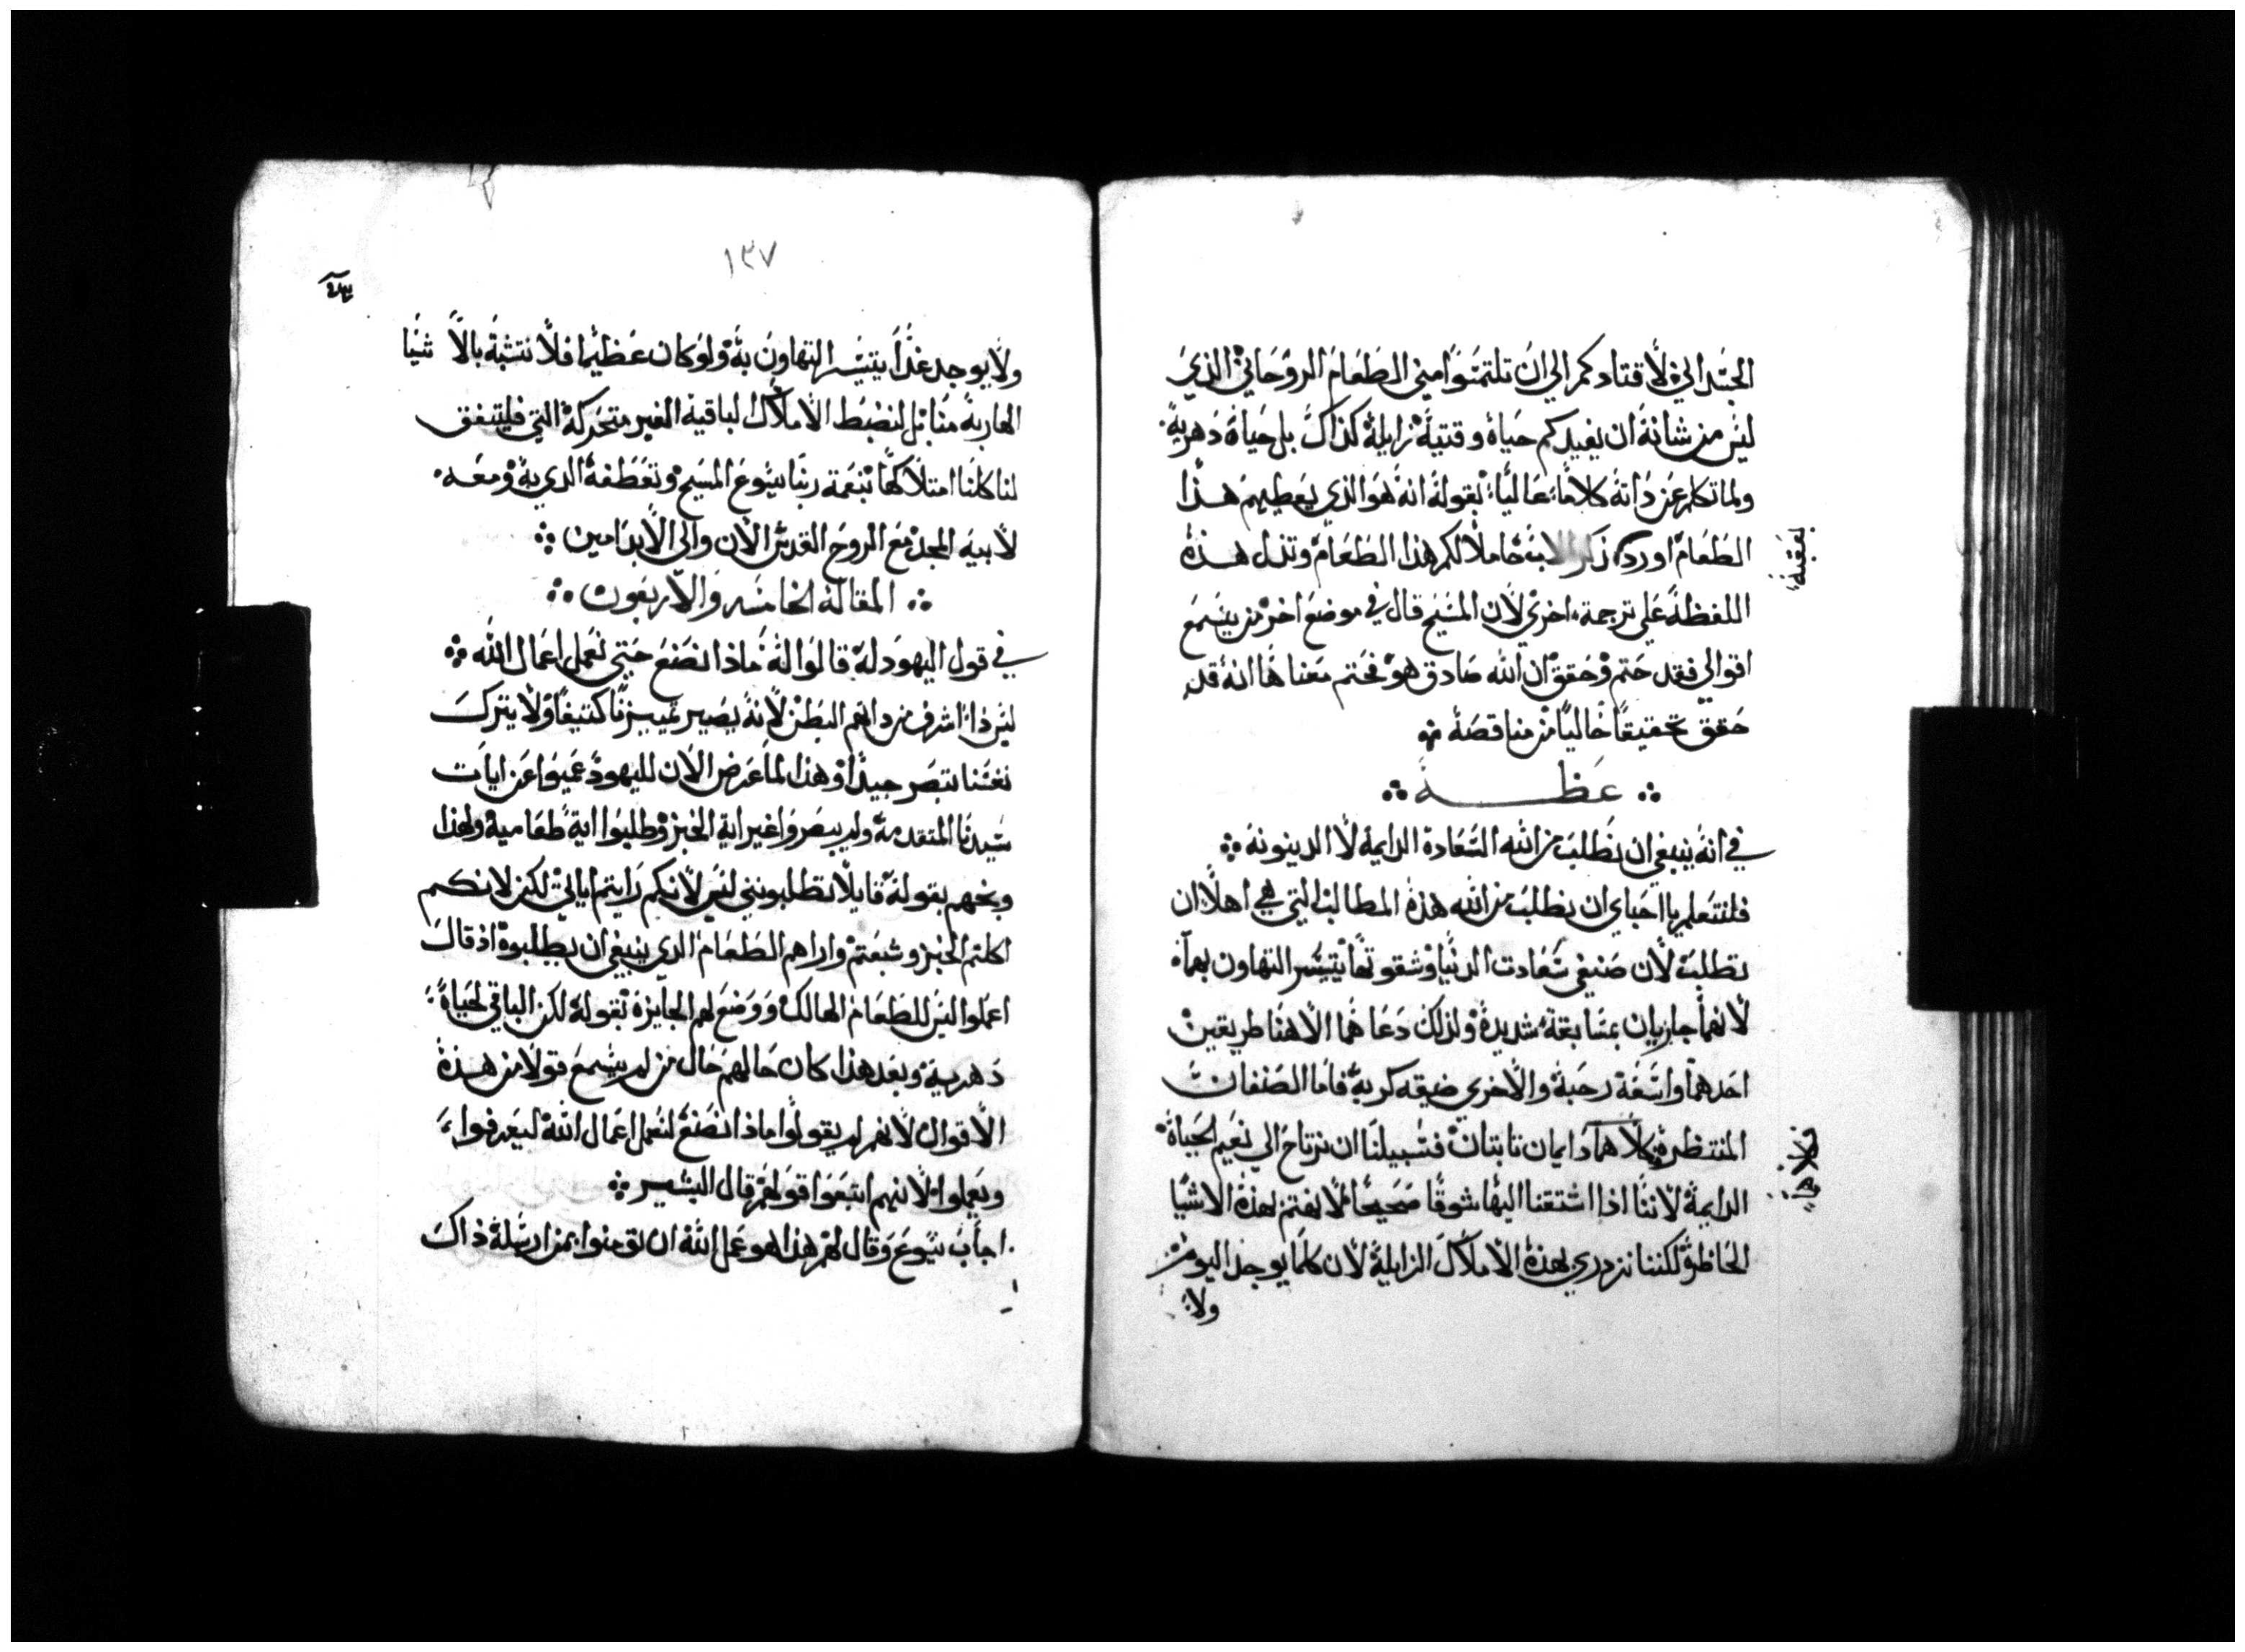 الجسد الي لاقتادكم الي ان تلتمسوا مني الطعام الروحاني الذي
ليس من شانه ان يفيدكم حياة وقتيه زايلة كذاك بل حياة دهرية
ولما تكلم عن ذاته كلاما عاليا بقوله انه هو الذي يعطيهم هذا
الطعام اورد ذكر الاب حاملا لكم هذا الطعام وتدل هذه
اللفظة علي ترجمة اخري لان المسيح قال في موضع اخر من يسمع
اقوالي فقد ختم وحقق ان الله صادق هو فختم معناها انه قد
حقق تحقيقا خاليا من مناقصة
عظة
في انه ينبغي ان نطلب من الله السعادة الدايمة لا الدينونه
فلنتعلم يا احباي ان نطلب من الله هذه المطالب التي هي اهلا ان
تطلب لان صنيفي سعادت الدنيا وشقوتها يتيسر التهاون بهما
لانهما جازيان بمسابقة شديدة ولذلك دعاهما الاهنا طريقين
احدهما واسعة رحبة والاخري ضيقه كربة فاما الصنفان
المنتظرة كلاهما دايمان ثابتان فسبيلنا ان نرتاح الي نعيم الحياة
الدايمة لاننا اذا اشتقنا اليها شوقا صحيحا لا نهتم بهذه الاشيا
الحاظرة لكننا نزدري بهذه الاملاك الزايلة لان كلما يوجد اليوم
ولا
١٣٧
ولا يوجد غدا يتيسر التهاون به ولو كان عظيما فلا نتشبه بالاشيا
الهاربة منا بل لنضبط الاملاك الباقية الغير متحركة التي فليتفق
لنا كلنا امتلاكها بنعمة ربنا يسوع المسيح وتعطفه الذي به ومعه
لابيه المجد مع الروح القدس الان والي الابد امين
المقالة الخامسه والاربعون
في قول اليهود له قالوا له ماذا نصنع حتي نعمل اعمال الله
ليس دا اشرف من داهم البطن لانه يصير تمييزنا كثيفا ولا يترك
نفسنا تبصر جيدا وهذا لما عرض الان لليهود عميوا عن ايات
سيدنا المتقدمة ولم يبصروا غير اية الخبز وطلبوا اية طعامية ولهذا
وبخهم بقوله قايلا تطلبونني ليس لانكم رايتم اياتي لكن لانكم
اكلتم الخبز وشبعتم واراهم الطعام الذي ينبغي ان يطلبوه اذ قال
اعملوا ليس للطعام الهالك ووضع لهم الجايزة بقوله لكن الباقي لحياة
دهرية وبعد هذا كان حالهم حال من لم يسمع قولا من هذه
الاقوال لانهم لم يقولوا ماذا نصنع لنعمل اعمال الله ليعرفوا
ويعملوا لانهم اتبعوا قولهم قال البشير
اجاب يسوع وقال لهم هذا هو عمل الله ان تومنوا بمن ارسله ذاك